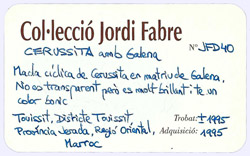 Col·lecció Jordi Fabre
CERUSSITA amb Galena Nº JFD40
Macla cíclica de Cerussita en matriu de Galena.
No es transparent però es molt brillant i te un
color bonic
Touissit, Districte Touissit, Trobat: ± 1995
Província Jerada, Regió Oriental, Adquisició: 1995
Marroc